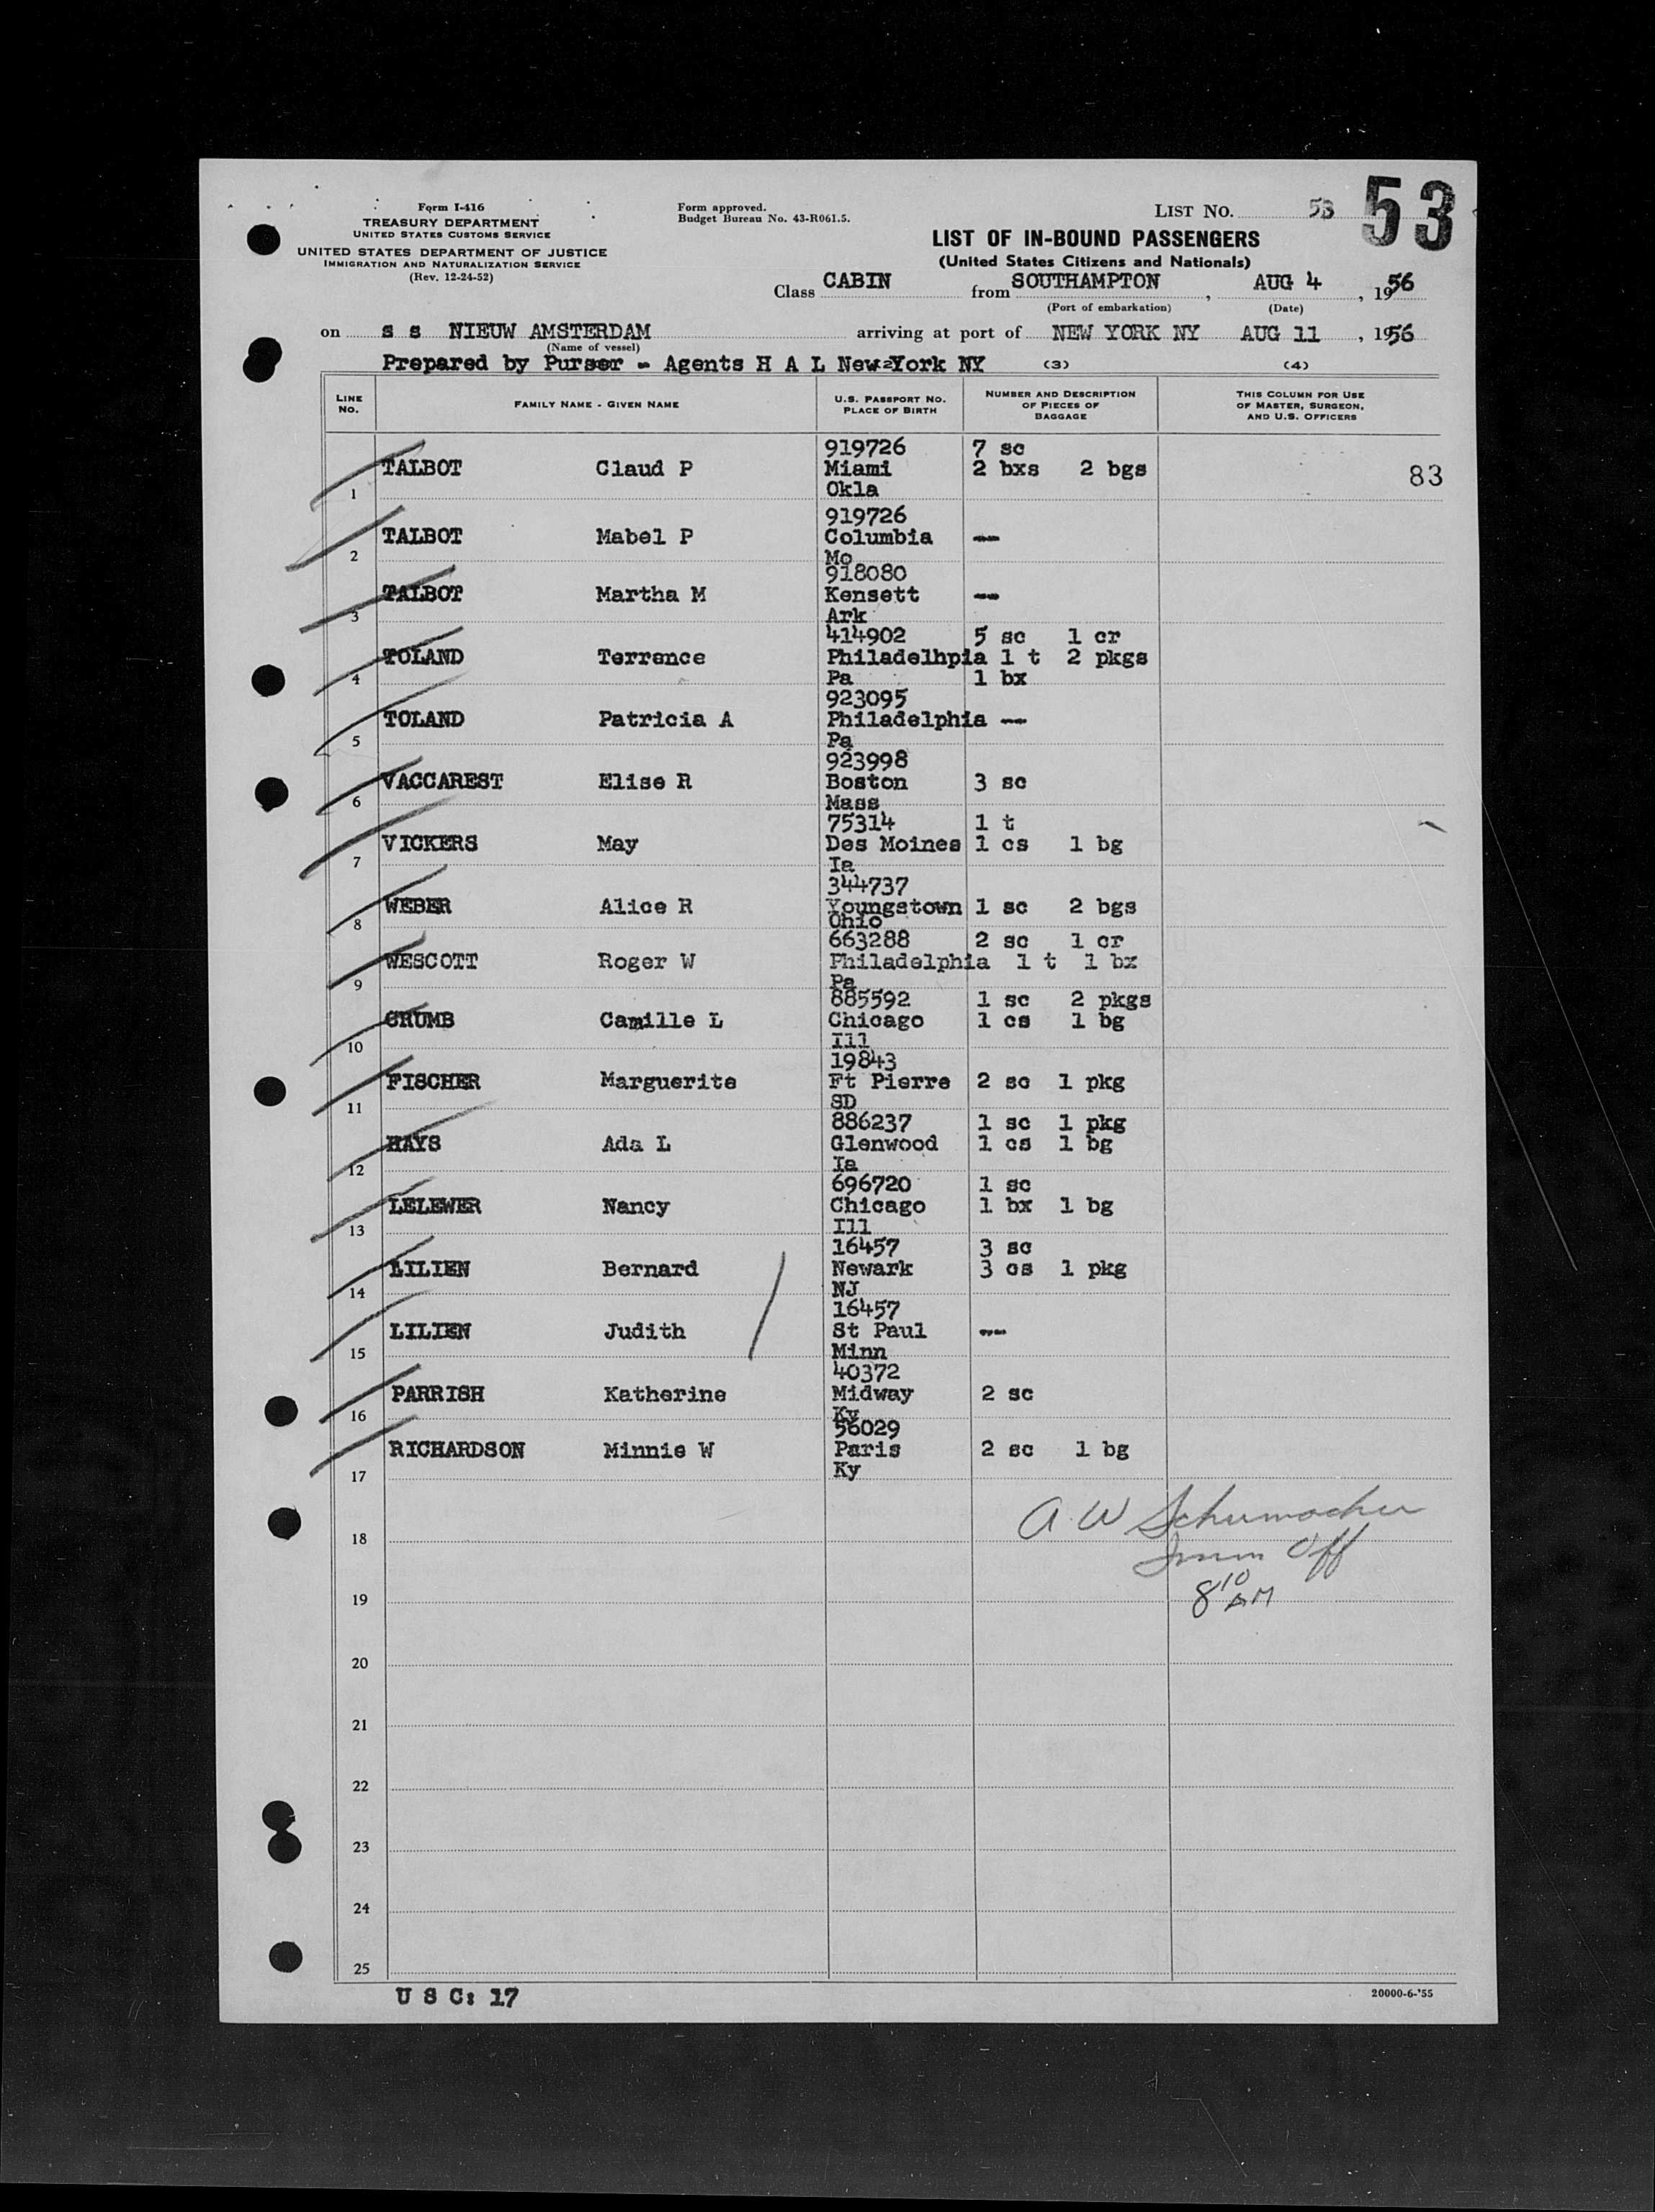 Form I-416
TREASURY DEPARTMENT
UNITED STATES CUSTOMS SERVICE
UNITED STATES DEPARTMENT OF JUSTICE
IMMIGRATION AND NATURALIZATION SERVICE
(Rev. 12-24-52)
Form approved.
Budget Bureau No. 43-R061.5.
LIST NO. 53 53
LIST OF IN-BOUND PASSENGERS
(United States Citizens and Nationals)
Class CABIN from SOUTHAMPTON, AUG 4, 1956
(Port of embarkation) (Date)
on s s NIEUW AMSTERDAM arriving at port of NEW YORK NY AUG 11, 1956
(Name of vessel)
Prepared by Purser - Agents H A L New York NY (3) (4)
LINE NO. FAMILY NAME - GIVEN NAME U.S. PASSPORT NO. PLACE OF BIRTH NUMBER AND DESCRIPTION OF PIECES OF BAGGAGE THIS COLUMN FOR USE OF MASTER, SURGEON, AND U.S. OFFICERS
919726 7 sc
TALBOT Claud P Miami 2 bxs 2 bgs 83
1 Okla
919726
TALBOT Mabel P Columbia --
2 Mo
918080
TALBOT Martha M Kensett --
3 Ark
414902 5 sc 1 cr
TOLAND Terrence Philadelhpia 1 t 2 pkgs
4 Pa 1 bx
923095
TOLAND Patricia A Philadelphia --
5 Pa
923998
VACCAREST Elise R Boston 3 sc
6 Mass
75314 1 t
VICKERS May Des Moines 1 cs 1 bg
7 Ia
344737
WEBER Alice R Youngstown 1 sc 2 bgs
8 Ohio
663288 2 sc 1 cr
WESCOTT Roger W Philadelphia 1 t 1 bx
9 Pa
885592 1 sc 2 pkgs
CRUMB Camille L Chicago 1 cs 1 bg
10 Ill
19843
FISCHER Marguerite Ft Pierre 2 sc 1 pkg
11 SD
886237 1 sc 1 pkg
HAYS Ada L Glenwood 1 cs 1 bg
12 Ia
696720 1 sc
LELEWER Nancy Chicago 1 bx 1 bg
13 Ill
16457 3 sc
LILIEN Bernard Newark 3 cs 1 pkg
14 NJ
16457
LILIEN Judith St Paul --
15 Minn
40372
PARRISH Katherine Midway 2 sc
16 Ky
56029
RICHARDSON Minnie W Paris 2 sc 1 bg
17 Ky
A W Schumacher
18
Imm Off
19 8 10 AM
20
21
22
23
24
25
U S C: 17
20000-6-'55